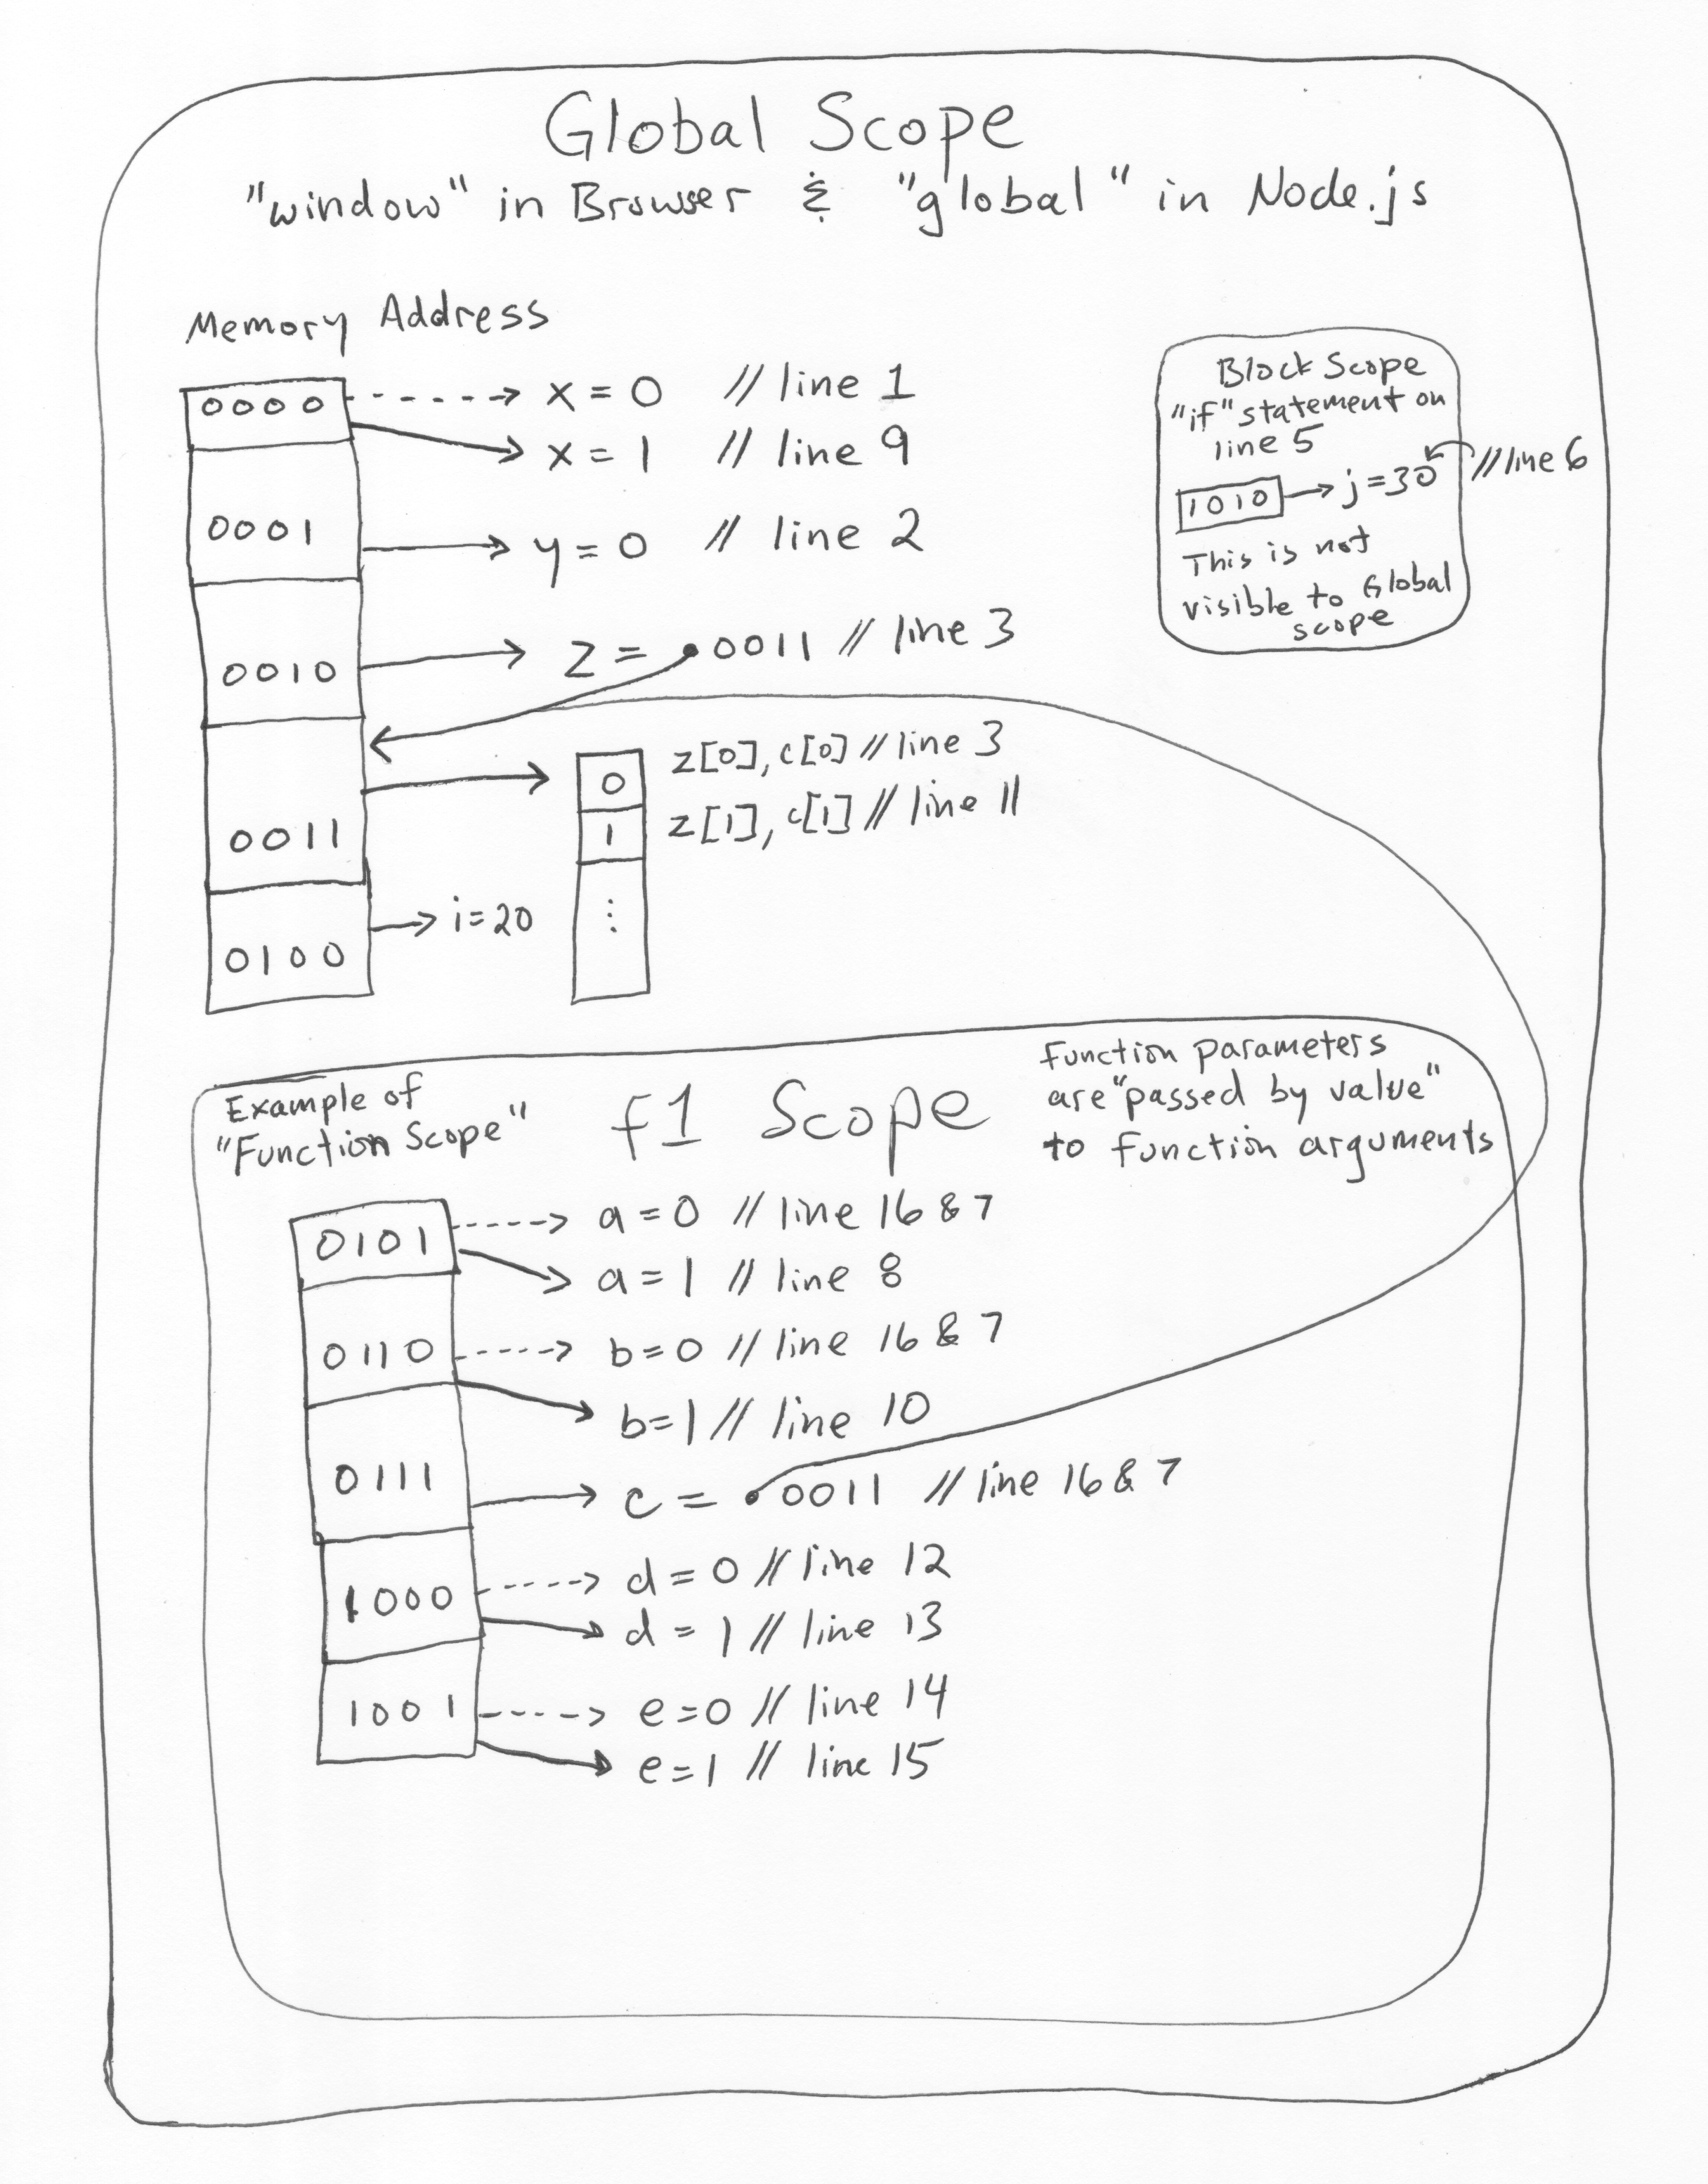 Global Scope
"window" in Browser & "global" in Node.js
Memory Address
0000
x = 0 // line 1
x = 1 // line 9
0001
y = 0 // line 2
0010
z = 0011 // line 3
0011
0
z[0], c[0] // line 3
1
z[1], c[1] // line 11
⋮
0100
i=20
Block Scope
"if" statement on
line 5
1010
j=30
// line 6
This is not
visible to Global
scope
Example of
"Function Scope"
f1 Scope
Function parameters
are "passed by value"
to function arguments
0101
a = 0 // line 16 & 7
a = 1 // line 8
0110
b=0 // line 16 & 7
b=1 // line 10
0111
c = 0011 // line 16 & 7
1000
d = 0 // line 12
d = 1 // line 13
1001
e=0 // line 14
e=1 // line 15